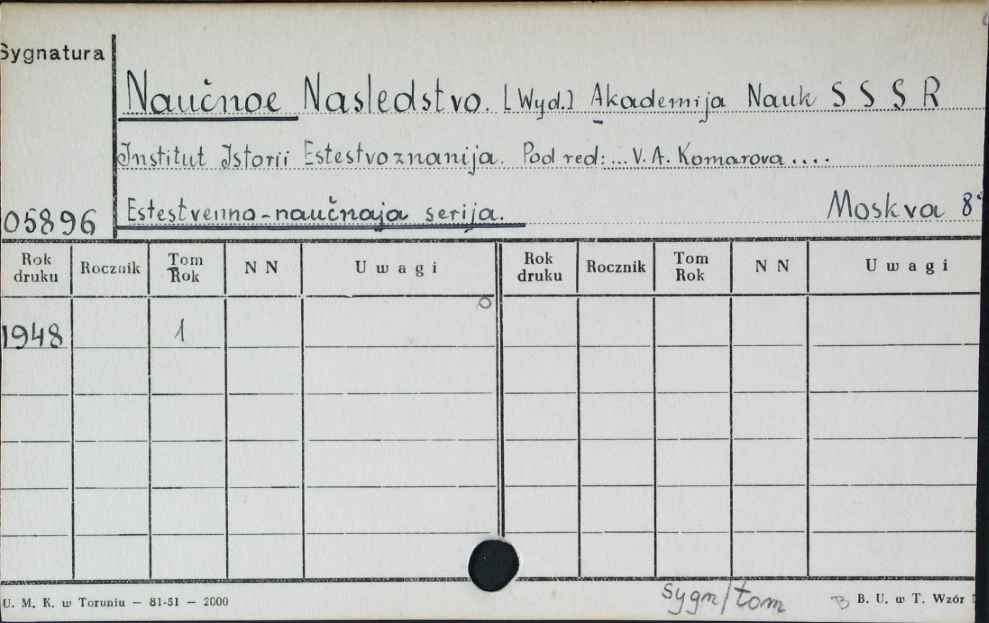 Sygnatura
Naučnoe Nasledstvo. [Wyd.] Akademija Nauk S S S R
Institut Istorii Estestvoznanija. Pod red: ... V. A. Komarova ....
05896 Estestvenno-naučnaja serija. Moskva 8°
Rok druku Rocznik Tom Rok N N Uwagi Rok druku Rocznik Tom Rok N N Uwagi
1948 1
sygn/tom
U. M. K. w Toruniu — 81-51 — 2000 B. U. w T. Wzór